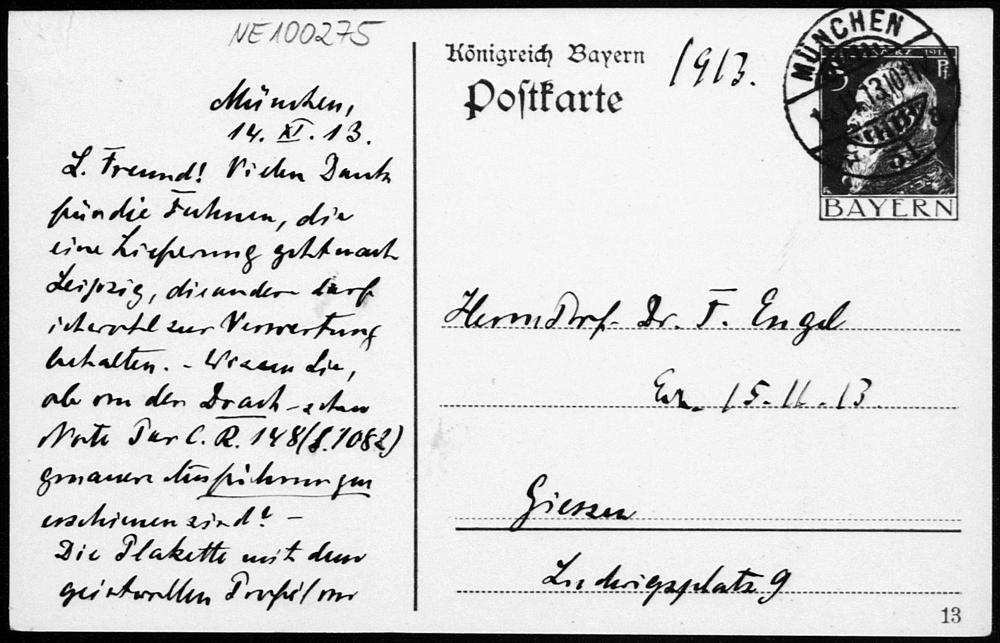 NE100275
München,
14. XI. 13.
L. Freund! Vielen Dank
für die Fahnen, die
eine Lieferung geht nach
Leipzig, die andere darf
ich wohl zur Verwertung
behalten. - Wissen Sie,
ob von den Drach-schen
Note Par C. R. 148 (S. 1082)
genauere Ausführungen
erschienen sind? -
Die Plakette mit dem
geistvollen Profil von
Königreich Bayern
1913.
Postkarte
MÜNCHEN
BAYERN
Herrn Prof. Dr. F. Engel
15.11.13.
Giessen
Ludwigsplatz 9
13